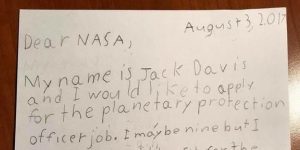 August 3, 2017
Dear NASA,
My name is Jack Davis
and I would like to apply
for the planetary protection
officer job. I maybe nine but I